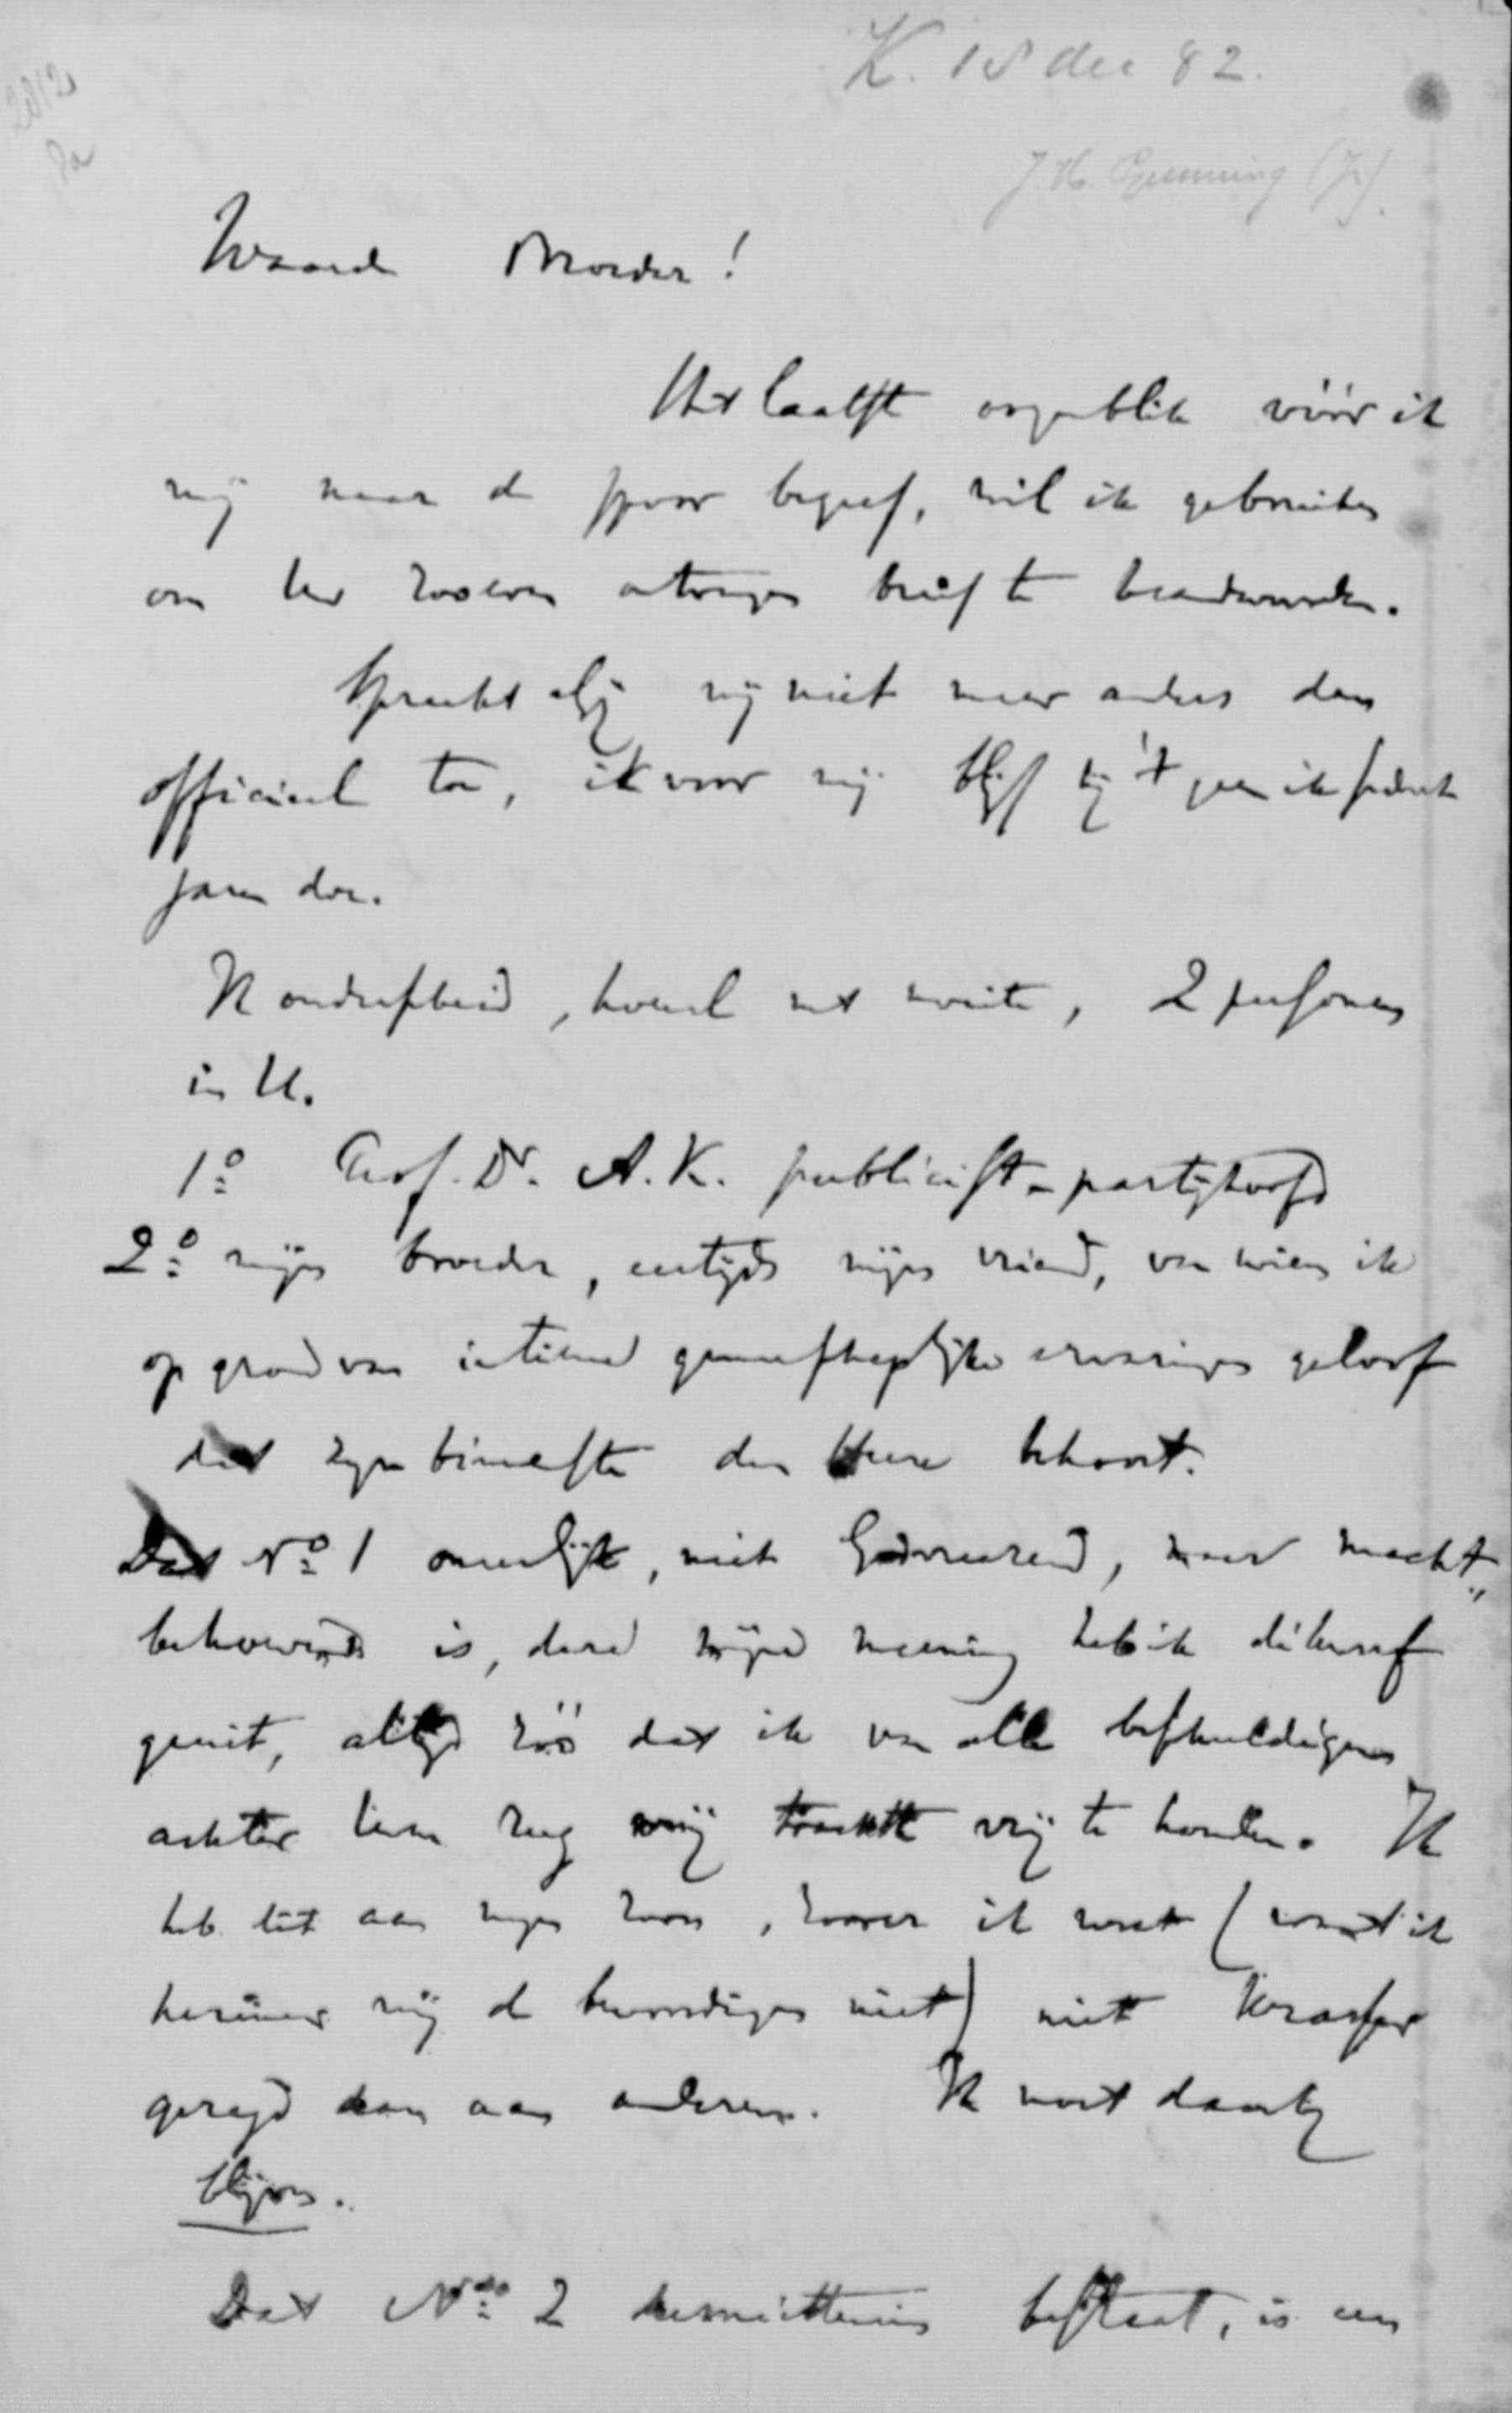 K. 15 dec 82.
J.H. Gunning (Jr).
Waarde Broeder!
Het laatste oogenblik vóór ik
mij naar de spoor begeef, wil ik gebruiken
om uw zooeven ontvangen brief te beantwoorden.
Spreekt gij mij niet meer anders dan
officieel toe, ik voor mij blijf bij 't geen ik sedert
jaren doe.
Ik onderscheid, hoewel met moeite, 2 personen
in U.
1º Prof. Dr. A.K. publicist en partijhoofd
2º mijn broeder, eertijds mijn vriend, van wien ik
op grond van intieme gemeenschappelijke ervaringen geloof
dat zijn binnenste den Heere behoort.
Dat No 1 oneerlijk, niet Godvreezend, maar macht"
behoevend is, deze mijne meening heb ik dikwerf
geuit, altijd zóó dat ik van alle beschuldigingen
achter uw rug mij trachtte vrij te houden. Ik
heb dit aan mijn zoon, zoover ik weet (want ik
herinner mij de bewoordingen niet) niet krasser
gezegd dan aan anderen. Ik moet daarbij
blijven.
Dat No 2 desniettemin bestaat, is een